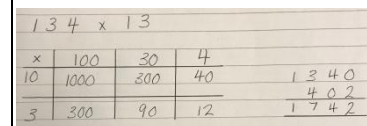 134 x 13
x 100 30 4
10 1000 300 40
3 300 90 12
1340
402
1742